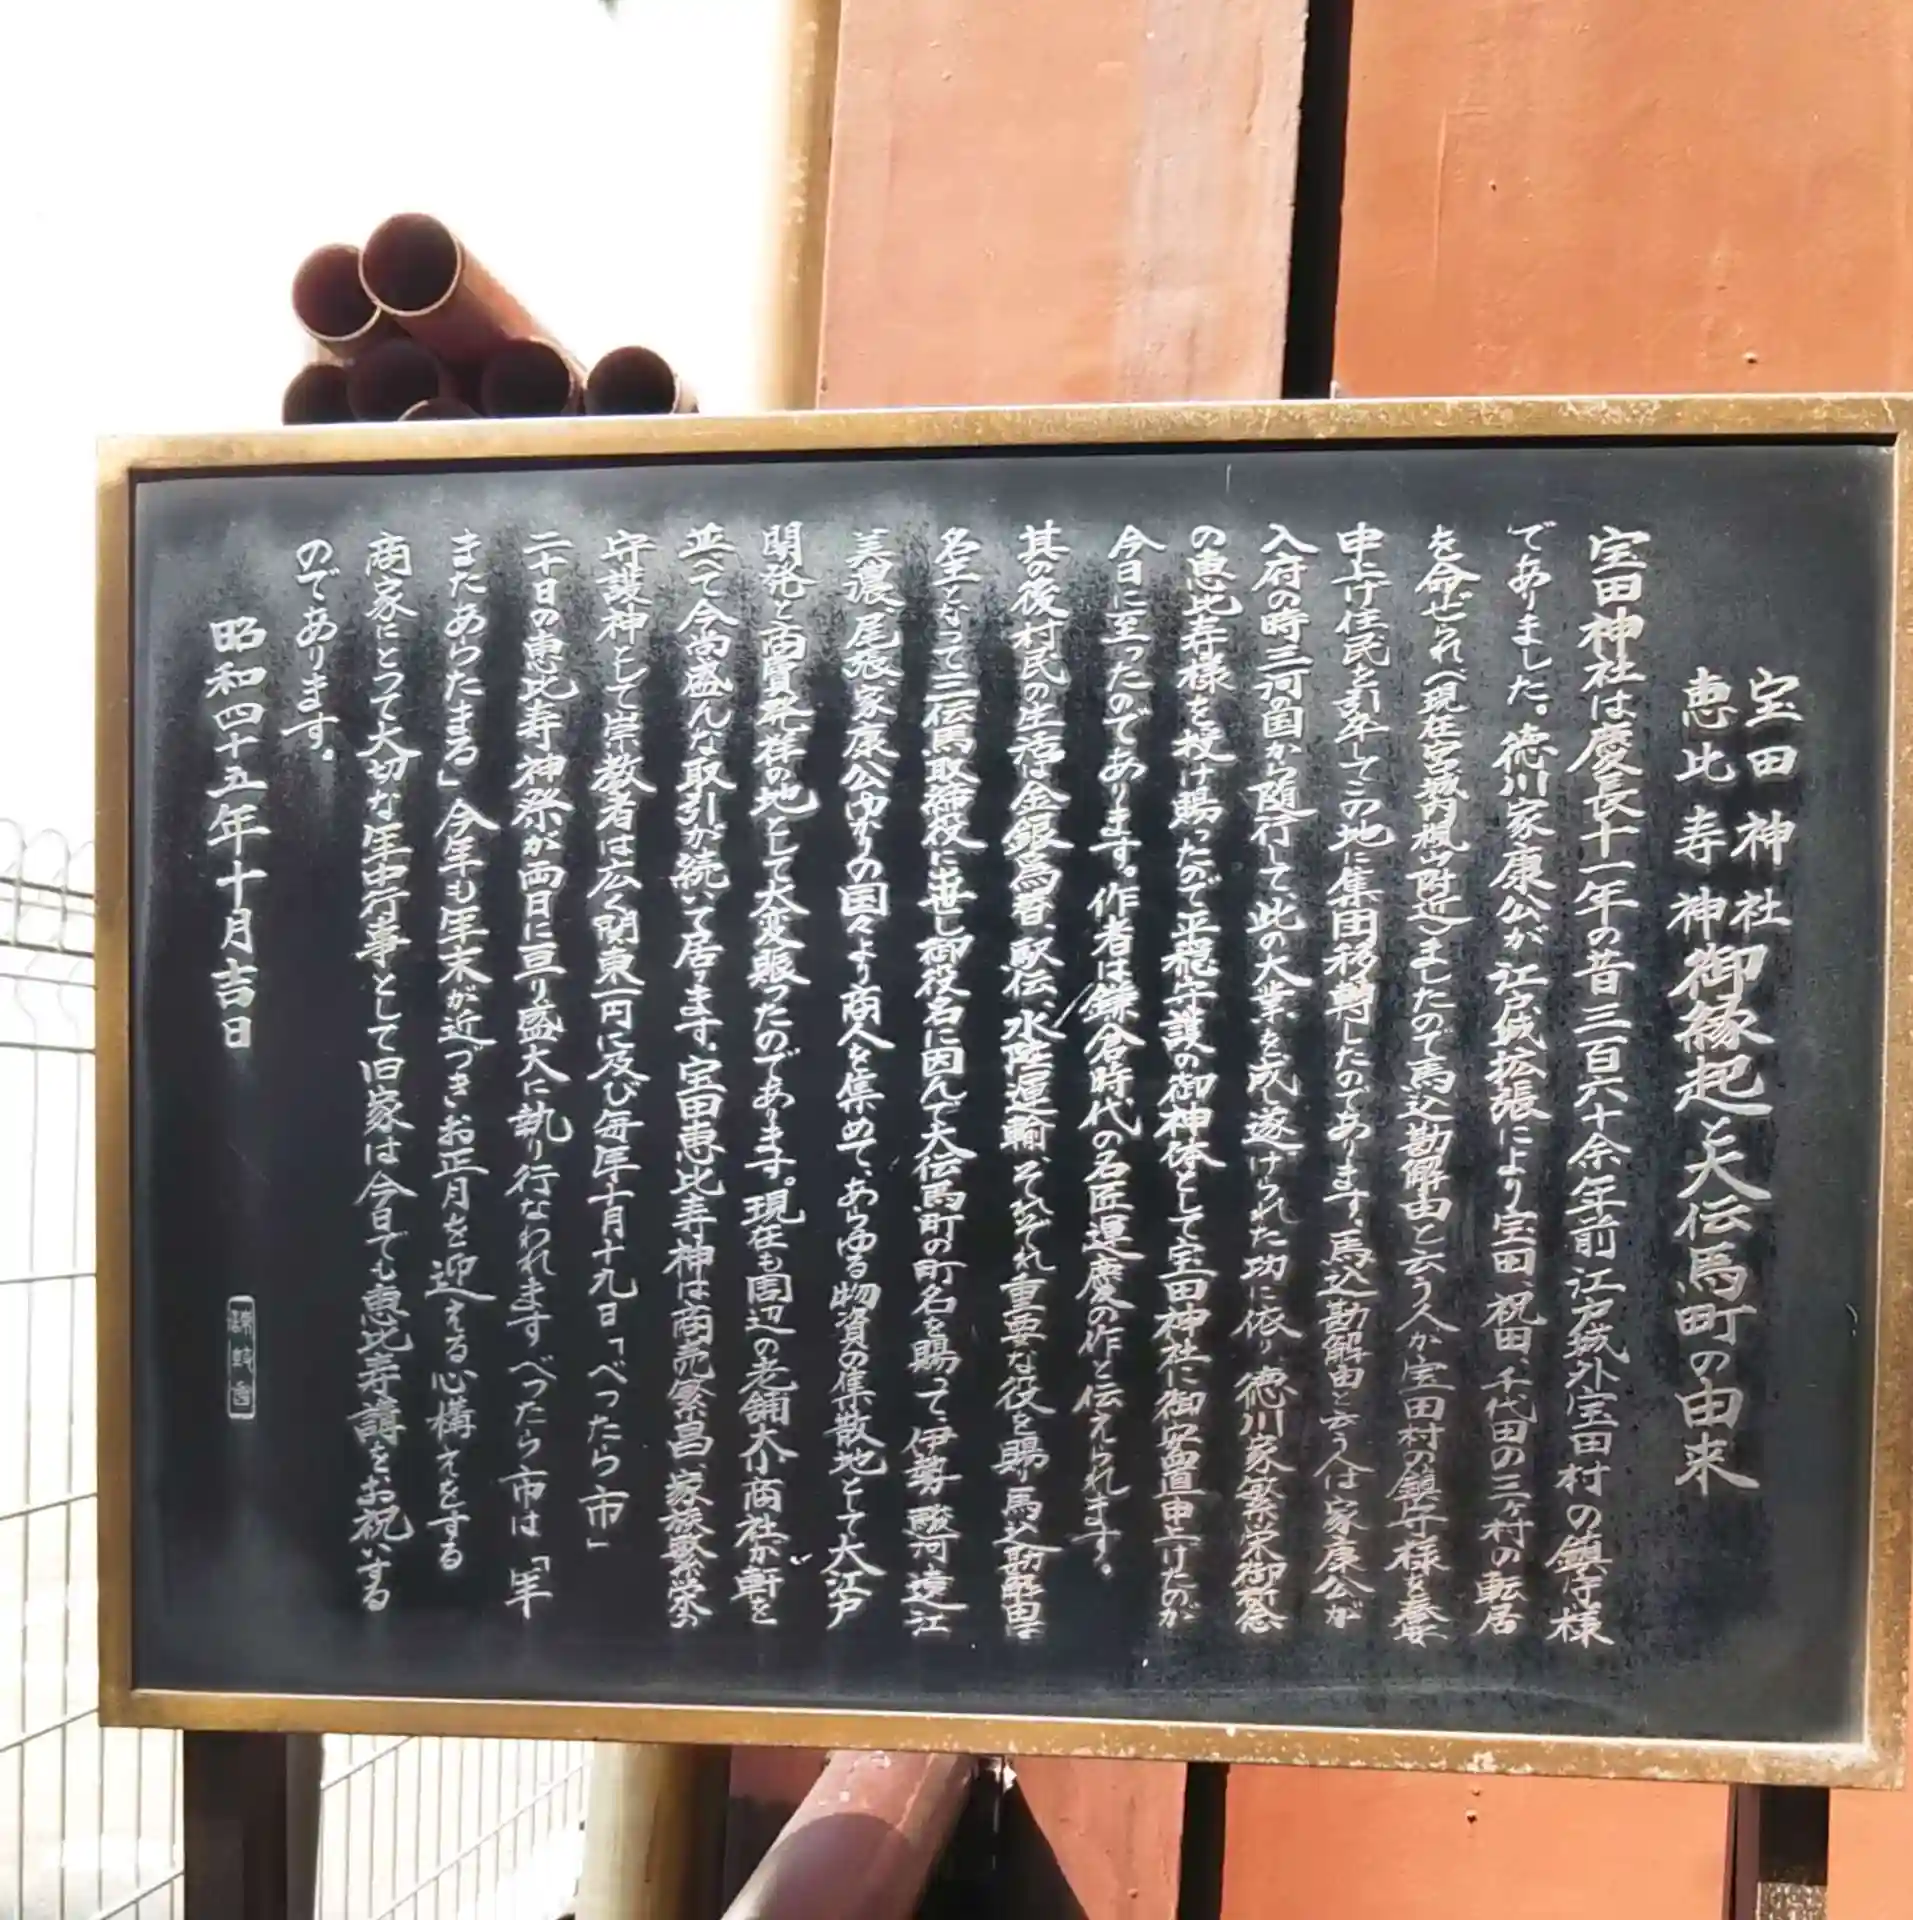 宝田神社
恵比寿神
御縁起と大伝馬町の由来
宝田神社は慶長十一年の昔三百六十余年前江戸城外宝田村の鎮守様
でありました。徳川家康公が江戸城拡張により宝田、祝田、千代田の三ヶ村の転居
を命ぜられ(現在宮城内楓山附近)ましたので馬込勘解由と云う人が宝田村の鎮守様を奉安
申上げ住民を引卒してこの地に集団移転したのであります。馬込勘解由と云う人は家康公が
入府の時三河の国から随行して此の大業を成し遂げられた功に依り徳川家繁栄御祈念
の恵比寿様を授け賜ったので平穏守護の御神体として宝田神社に御安置申上げたのが
今日に至ったのであります。作者は鎌倉時代の名匠運慶の作と伝えられます。
其の後村民の生活は金銀為替、駅伝、水陸運輸、それぞれ重要な役を賜り馬込勘解由は
名主となって三伝馬取締役に出世し御役名に因んで大伝馬町の町名を賜って、伊勢駿河遠江
美濃、尾張家康公ゆかりの国々より商人を集めて、あらゆる物資の集散地として大江戸
開発と商賈発祥の地として大変賑ったのであります。現在も周辺の老舗大小商社が軒を
並べて今尚盛んな取引が続いて居ります。宝田恵比寿神は商売繁昌、家族繁栄の
守護神として崇敬者は広く関東一円に及び毎年十月十九日「べったら市」
二十日の恵比寿神祭が両日に亘り盛大に執り行なわれますべったら市は「年
またあらたまる」今年も年末が近づきお正月を迎える心構えをする
商家にとって大切な年中行事として旧家は今日でも恵比寿講をお祝いする
のであります。
昭和四十五年十月吉日